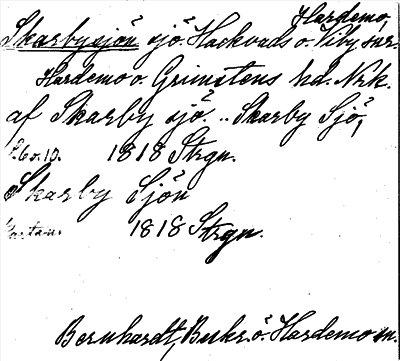 Hardemo,
Skarbysjön sjö. Hackvads o. Viby snr.
Hardemo o. Grimstens hd. Nrk.
af Skarby sjö. .. Skarby Sjö,
1818 Strgn.
Skarby Sjön
Kartan. 1818 Strgn.
Bernhardt, Beskr. ö. Hardemo sn.